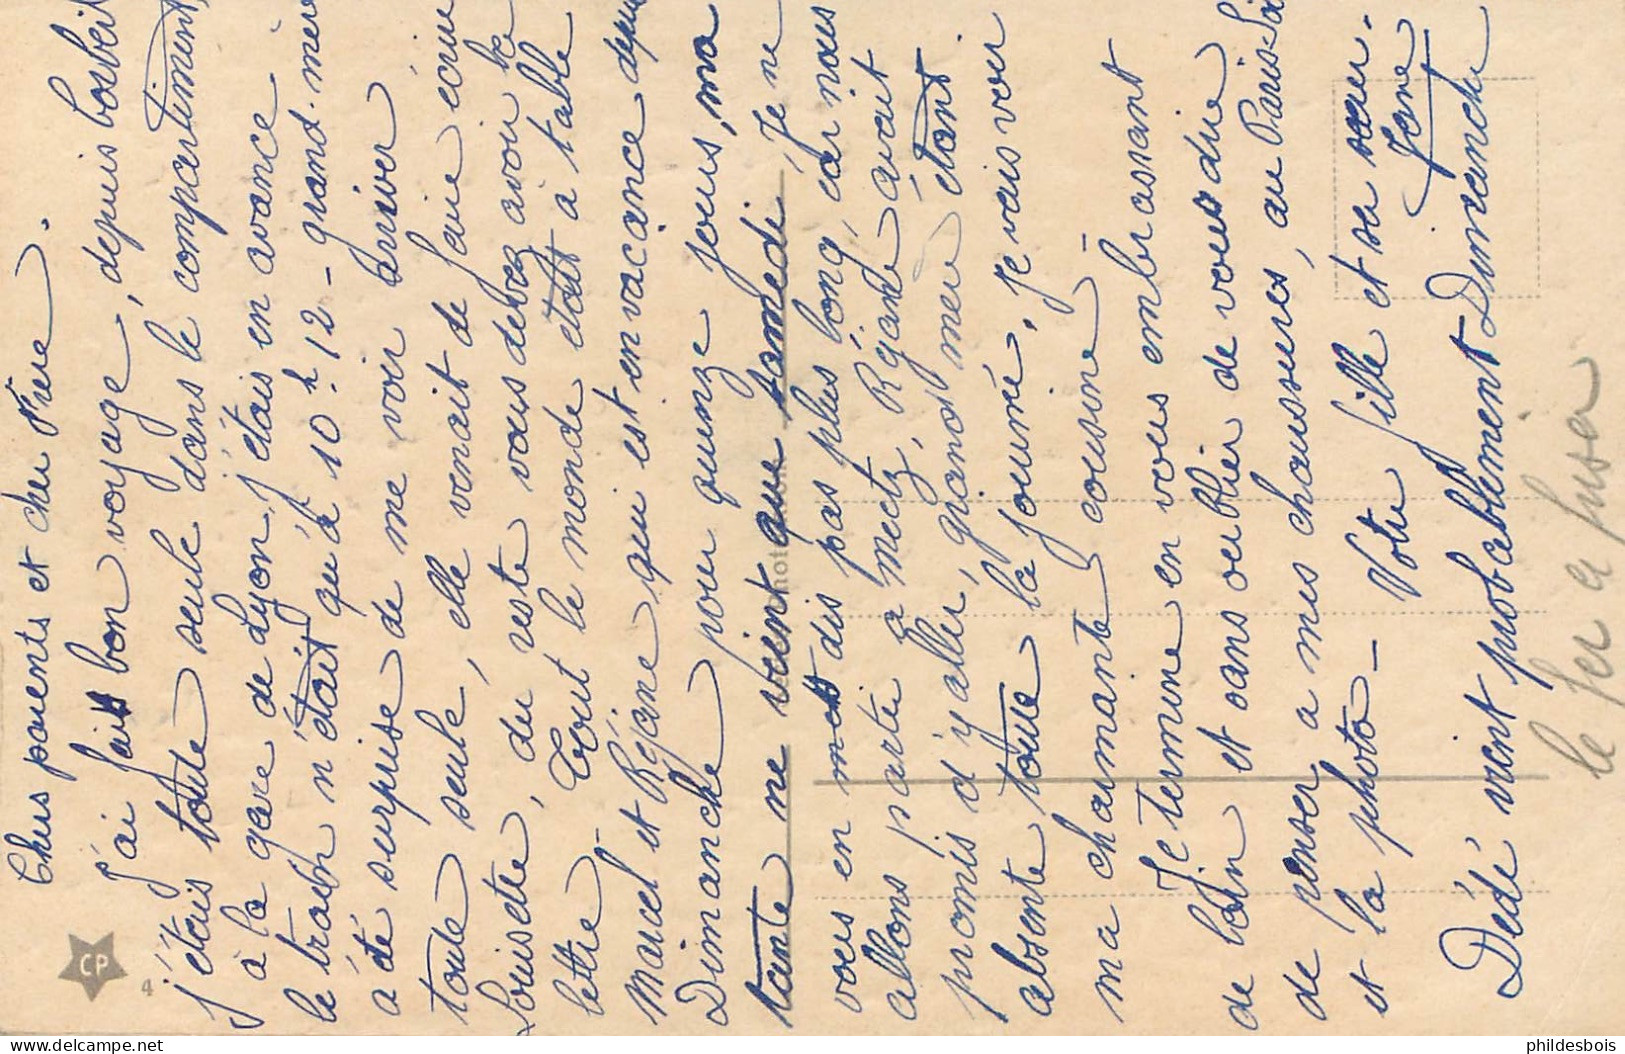 Chers parents et cher Père.
J'ai fait bon voyage, depuis Corbeil
j'étais toute seule dans le compartiment,
à la gare de Lyon j'étais en avance
le train n'était qu'à 10h12 - grand-mère
a été surprise de me voir arriver
toute seule, elle venait de faire écrire
Louisette, du reste vous devez avoir la
lettre. Tout le monde était à table
Marcel et Réjane qui est en vacance depuis
Dimanche pour quinze jours, ma
tante ne vient que samedi. Je ne
vous en dis pas plus long car nous
allons partir à Mectz, Réjane avait
promis d'y aller, grand mère étant
absente toute la journée. Je vais voir
ma charmante cousine -
Je termine en vous embrassant
de loin et sans oublier de vous dire
de penser a mes chaussures, au
et la photo - Votre fille et sa sœur.
Jane
Dédé vient probablement Dimanche
le fer a
CP
4
delcampe.net
phildesbois